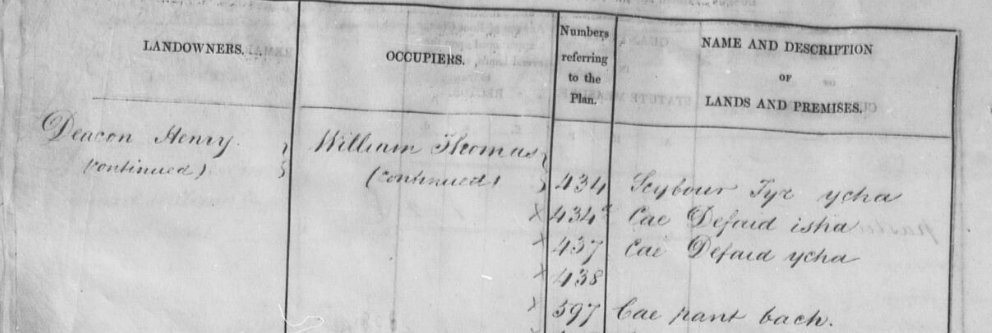 LANDOWNERS.
OCCUPIERS.
Numbers
referring
to the
Plan.
NAME AND DESCRIPTION
OF
LANDS AND PREMISES.
Deacon Henry
(continued)
William Thomas
(continued)
434 ycha
434a Cae Defaid isha
437 Cae Defaid ycha
438
597 Cae pant bach.